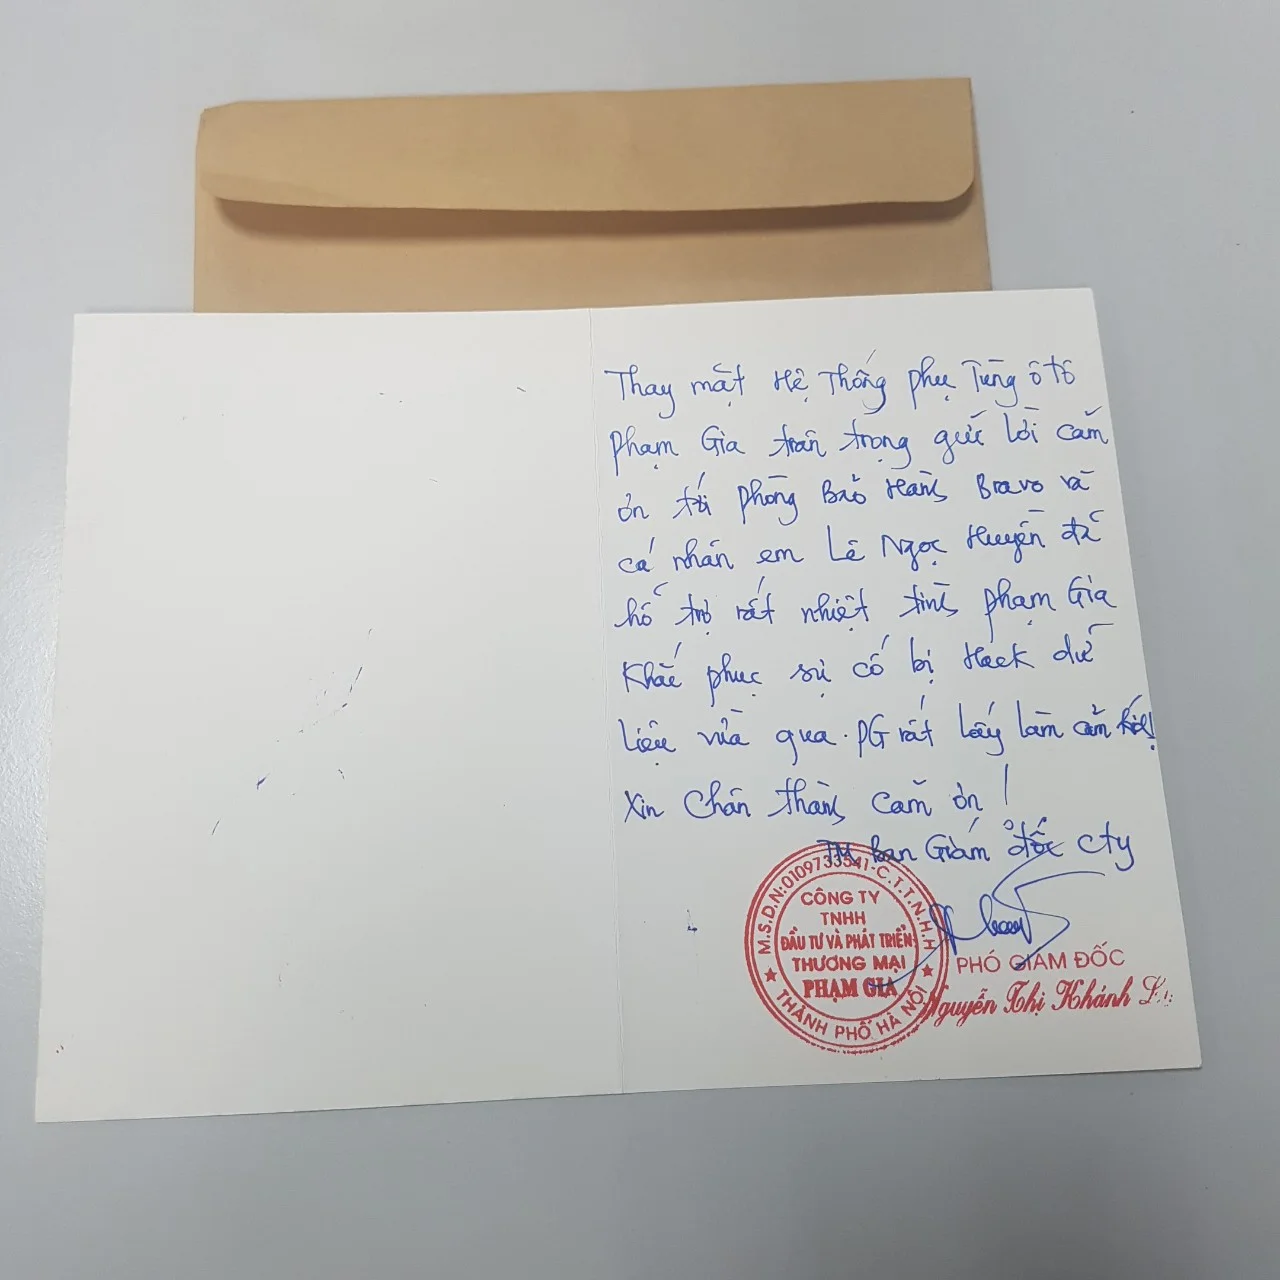 Thay mặt Hệ Thống phụ Tùng ô tô
Phạm Gia trân trọng gửi lời cảm
ơn tới phòng Bảo Hành Bravo và
cá nhân em Lê Ngọc Huyền đã
hỗ trợ rất nhiệt tình Phạm Gia
Khắc phục sự cố bị Hack dữ
liệu vừa qua. PG rất lấy làm cảm kích!
Xin Chân thành cảm ơn!
TM Ban Giám đốc Cty
M.S.D.N:0109733541-C.T.T.N.H.H
CÔNG TY
TNHH
ĐẦU TƯ VÀ PHÁT TRIỂN
THƯƠNG MẠI
PHẠM GIA
THÀNH PHỐ HÀ NỘI
PHÓ GIÁM ĐỐC
Nguyễn Thị Khánh